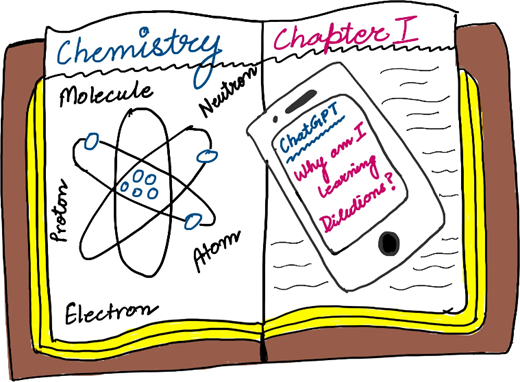 Chemistry
Chapter I
Molecule
Neutron
Proton
Atom
Electron
ChatGPT
Why am I
Learning
Dilutions?